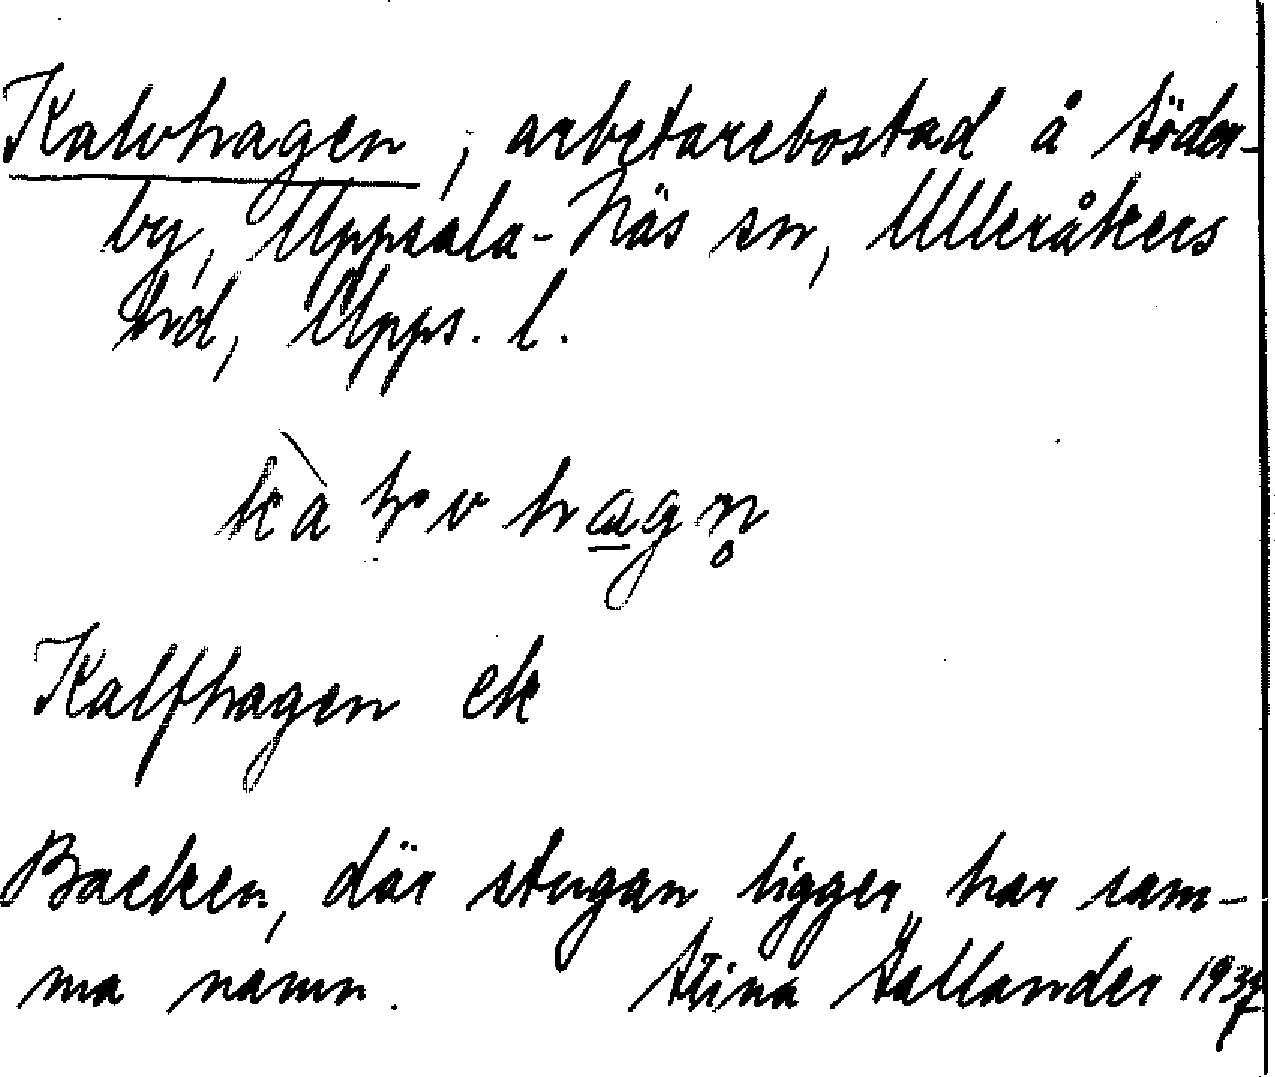 Kalvhagen, arbetarebostad å Söder-
by, Uppsala-Näs sn, Ulleråkers
hd, Upps. l.
Kalfhagen ek
Backen, där stugan ligger, har sam-
ma namn. Stina Hallander 1937